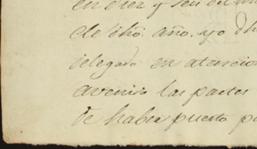 en diez y seis de
de dho. año. yo dho
delegado en atencion
avenido las partes
de haber puesto